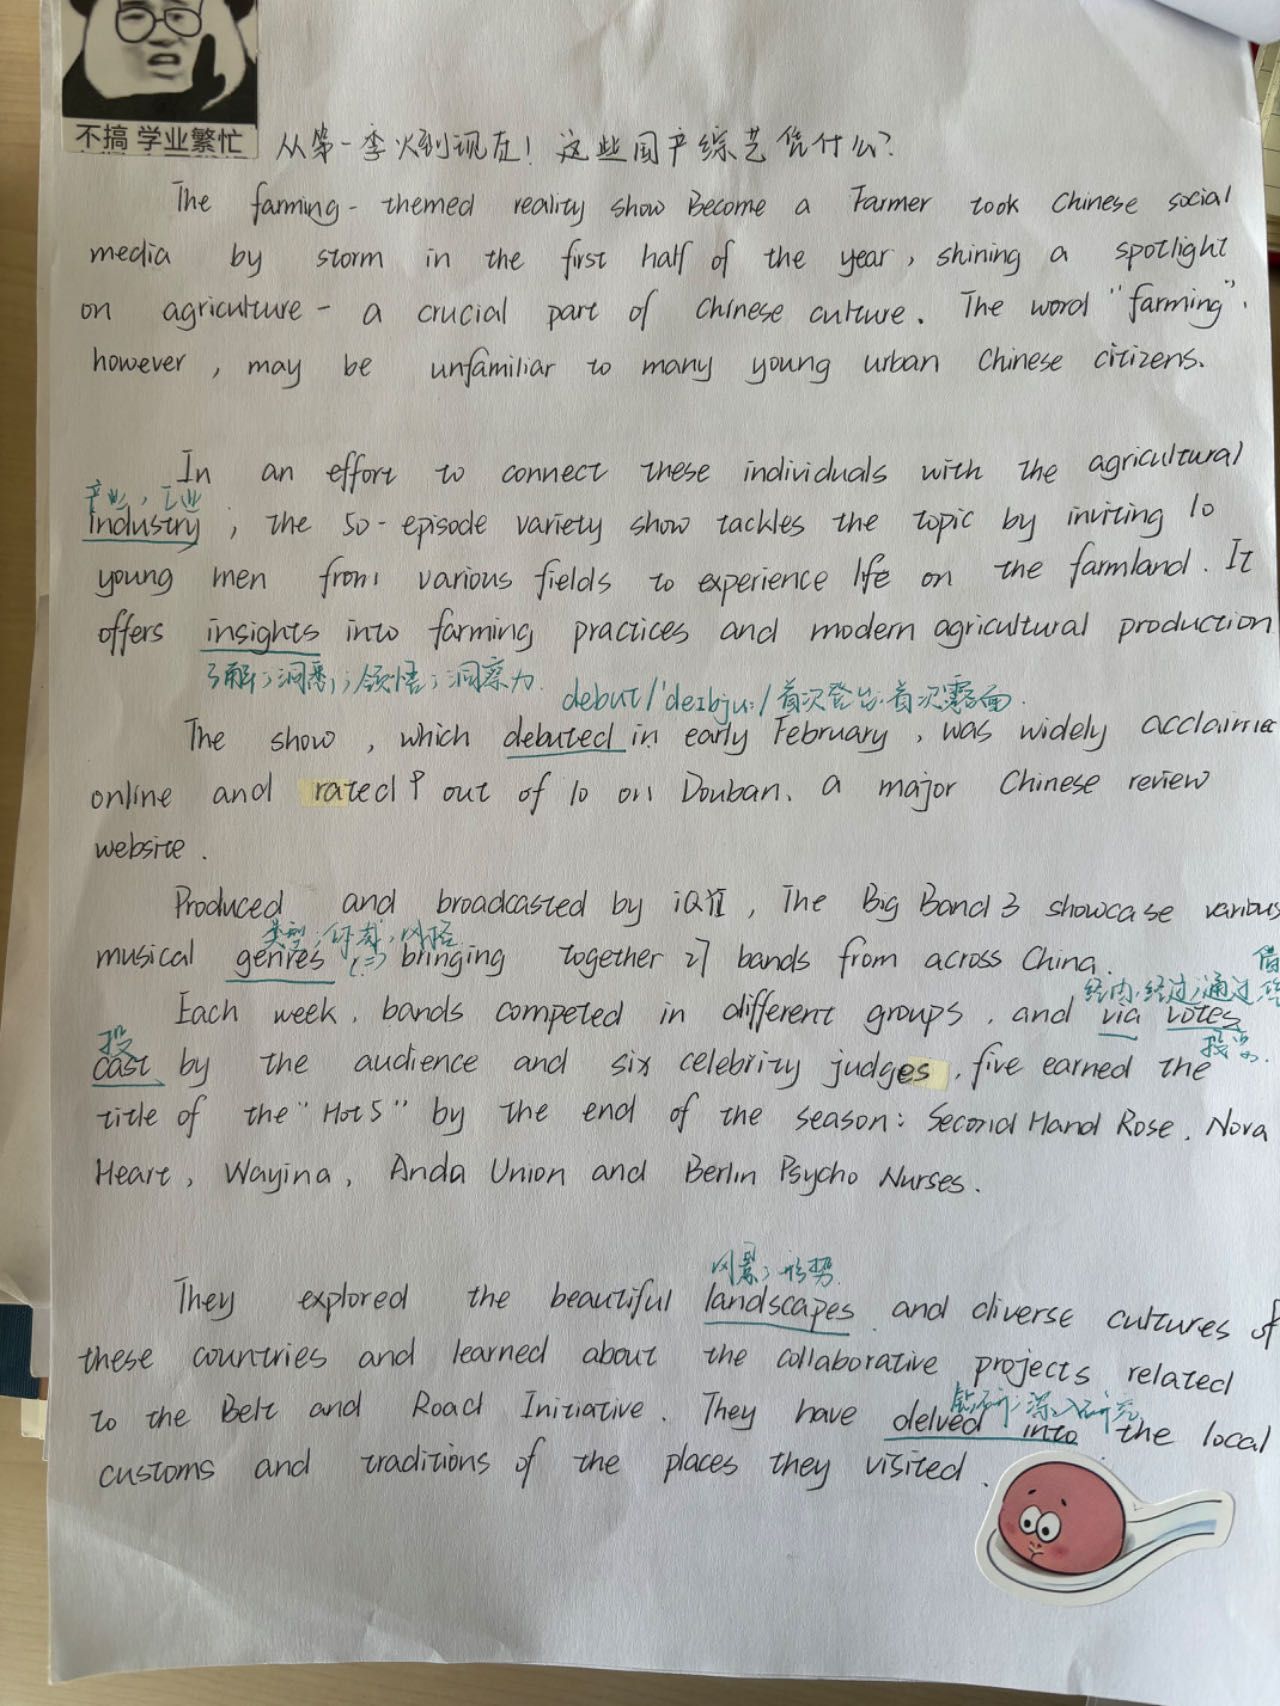 不搞 学业繁忙
从第一季火到现在！这些国产综艺凭什么？
The farming-themed reality show Become a Farmer took Chinese social
media by storm in the first half of the year, shining a spotlight
on agriculture - a crucial part of Chinese culture. The word "farming",
however, may be unfamiliar to many young urban Chinese citizens.
In an effort to connect these individuals with the agricultural
产业，工业
industry, the 50-episode variety show tackles the topic by inviting 10
young men from various fields to experience life on the farmland. It
offers insights into farming practices and modern agricultural production
了解；洞悉；领悟；洞察力.
debut/ˈdeɪbjuː/首次登台.首次露面.
The show, which debuted in early February, was widely
online and rated 9 out of 10 on Douban, a major Chinese review
website.
Produced and broadcasted by iQYI, The Big Band 3 showcase various
类型；体裁；风格
musical genres bringing together 27 bands from across China.
经由.经过；通过
Each week, bands competed in different groups, and via votes
投
投票.
cast by the audience and six celebrity judges, five earned the
title of the "Hot 5" by the end of the season: Second Hand Rose, Nova
Heart, Wayina, Anda Union and Berlin Psycho Nurses.
风景；形势
They explored the beautiful landscapes and diverse cultures of
these countries and learned about the collaborative projects related
钻研；深入研究
to the Belt and Road Initiative. They have delved into the local
customs and traditions of the places they visited.